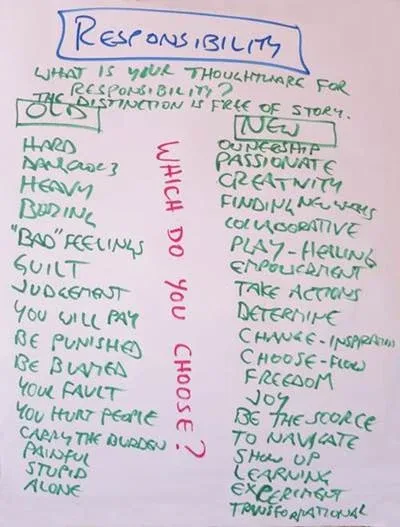 RESPONSIBILITY
WHAT IS YOUR THOUGHTWARE FOR
RESPONSIBILITY?
THE DISTINCTION IS FREE OF STORY.
OLD
HARD
DANGROUS
HEAVY
BORING
"BAD" FEELINGS
GUILT
JUDGEMENT
YOU WILL PAY
BE PUNISHED
BE BLAMED
YOUR FAULT
YOU HURT PEOPLE
CARRY THE BURDEN
PAINFUL
STUPID
ALONE
WHICH DO YOU CHOOSE?
NEW
OWNERSHIP
PASSIONATE
CREATIVITY
FINDING NEW WAYS
COLLABORATIVE
PLAY-HEALING
EMPOWERMENT
TAKE ACTIONS
DETERMINE
CHANGE-INSPIRATION
CHOOSE-FLOW
FREEDOM
JOY
BE THE SOORCE
TO NAVIGATE
SHOW UP
LEARNING
EXPERIMENT
TRANSFORMATIONAL